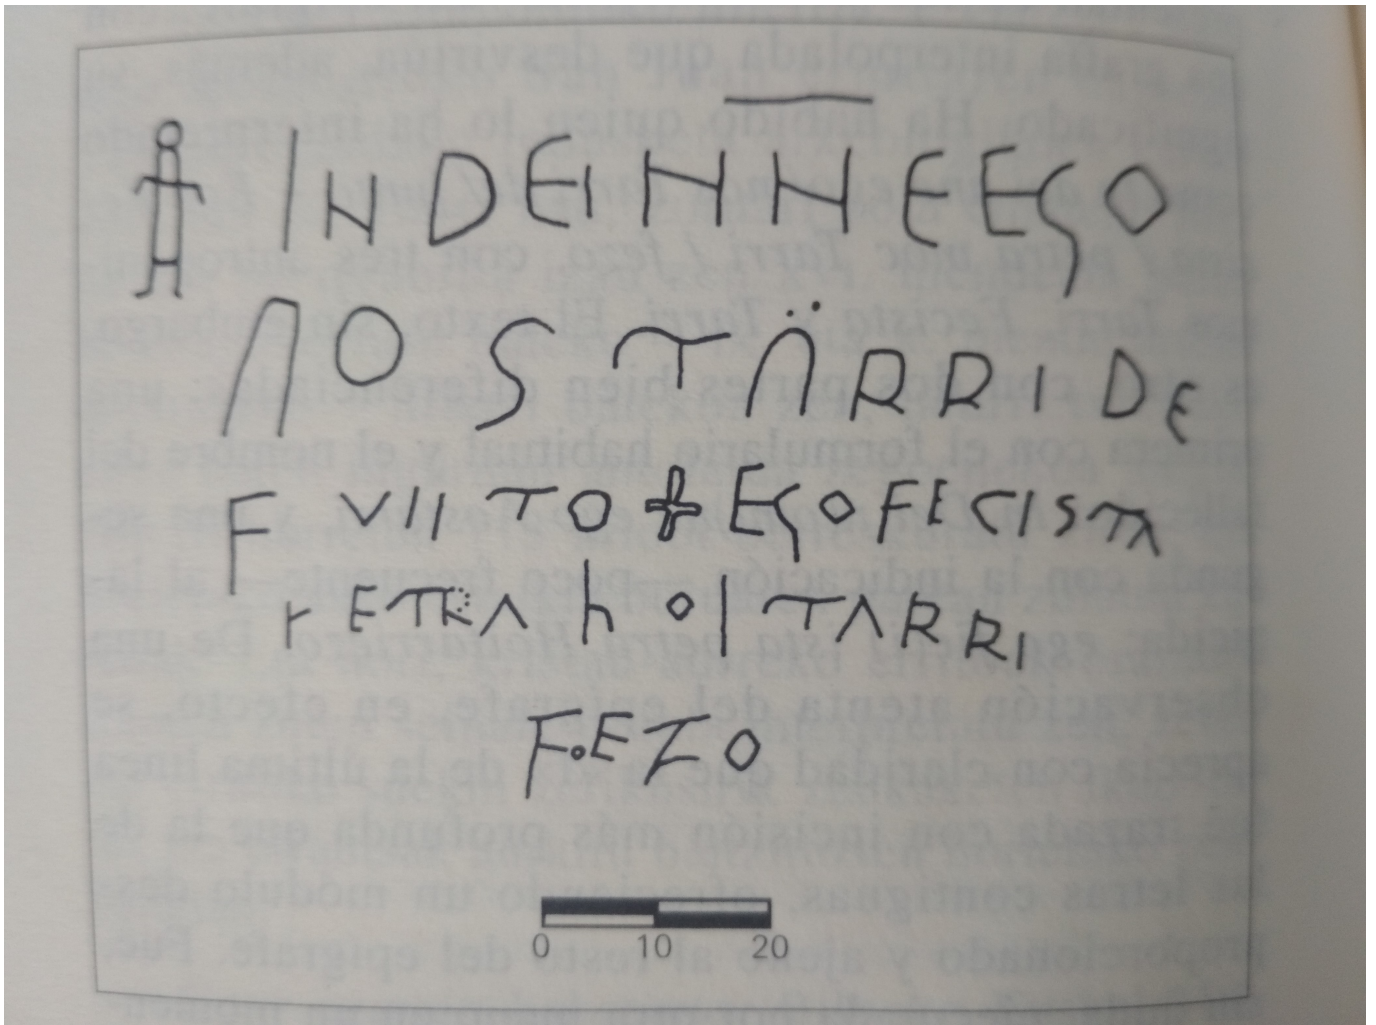 INDEINNEEGO
AOSTARRI DE
FVIITO + EGO FECISTA
PETRA hOITARRI
FEZO
0 10 20